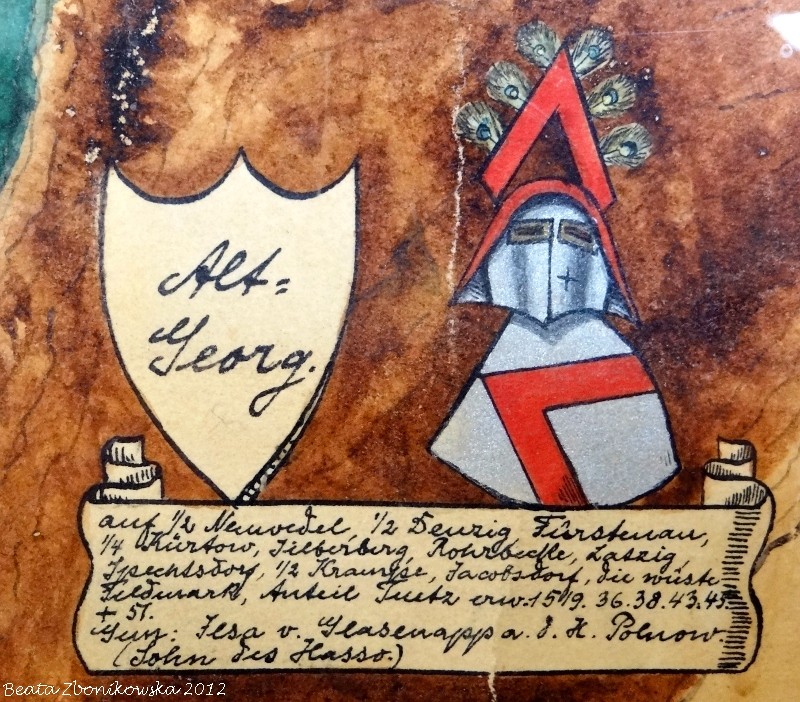 Alt-
Georg.
auf 1/2 Neuwedel, 1/2 Denzig Fürstenau,
1/4 Kürtow, Silberberg, Rohrbecke, Latzig,
Spechtsdorf, 1/2 Krampe, Jacobsdorf, die wüste
Feldmark, Anteil Tuetz erw. 1519. 36. 38. 43. 45
+ 51.
Gem: Ilsa v. Glasenapp a. d. H. Polnow.
(Sohn des Hasso.)
Beata Zbonikowska 2012